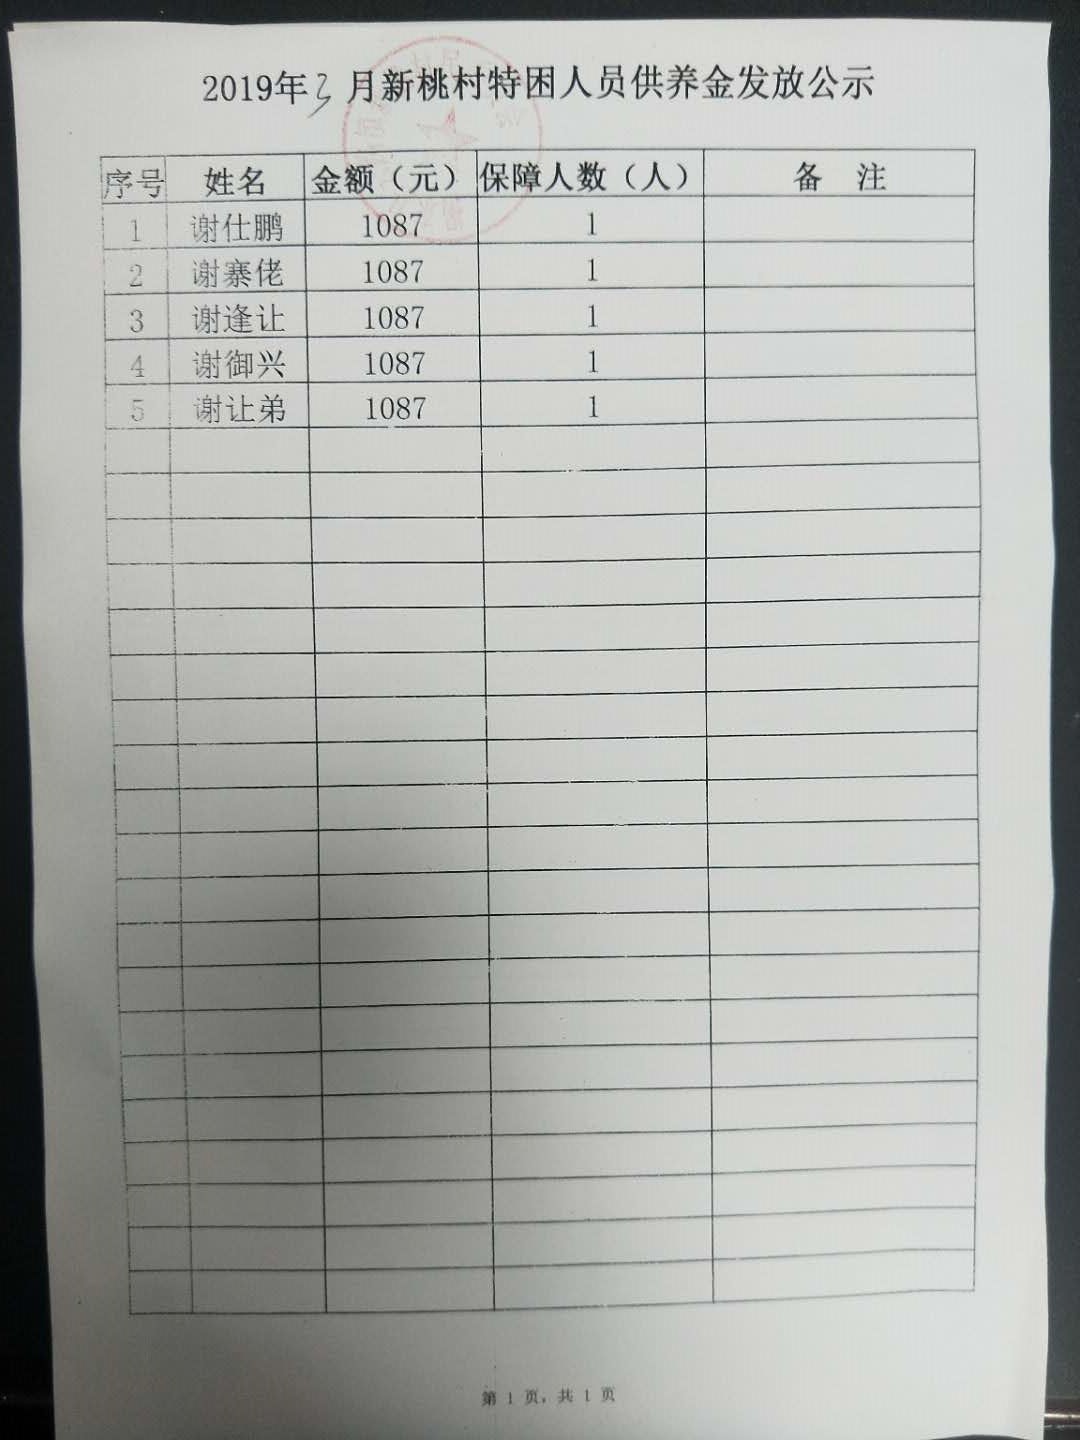 2019年3月新桃村特困人员供养金发放公示
序号 姓名 金额（元） 保障人数（人） 备 注
1 谢仕鹏 1087 1
2 谢寨佬 1087 1
3 谢逢让 1087 1
4 谢御兴 1087 1
5 谢让弟 1087 1
第 1 页，共 1 页